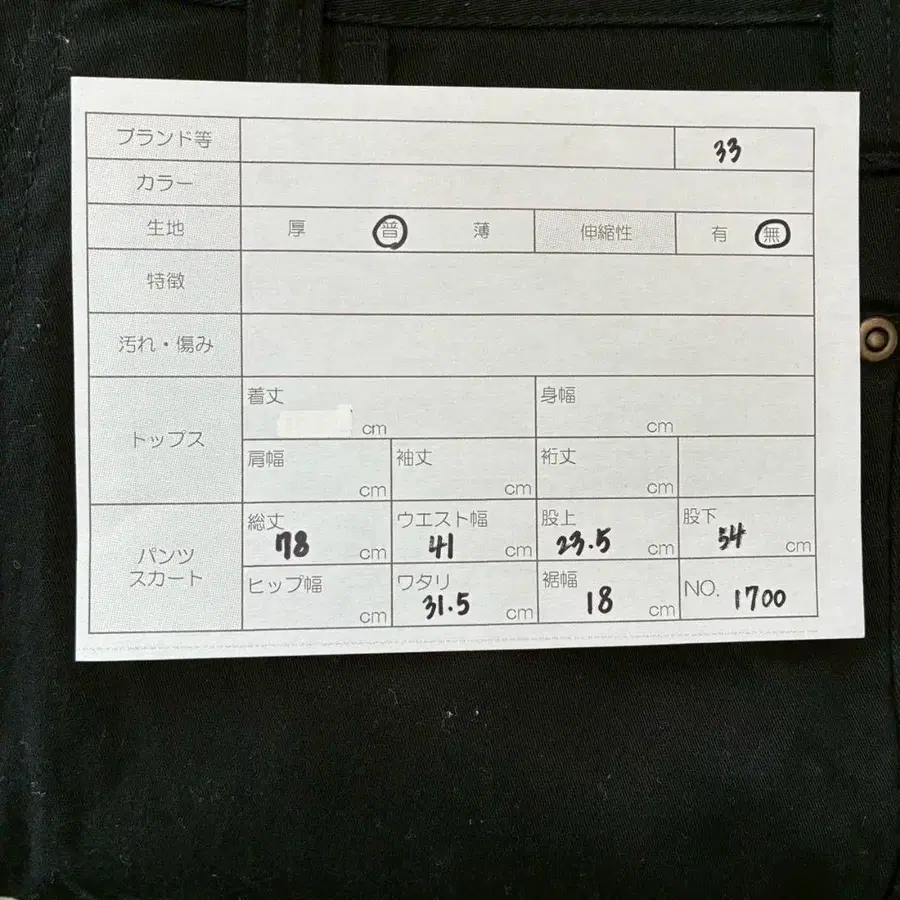 ブランド等 33
カラー
生地 厚 普 薄 伸縮性 有 無
特徴
汚れ・傷み
トップス
着丈 cm 身幅 cm
肩幅 cm 袖丈 cm 裄丈 cm
パンツ
スカート
総丈 78 cm ウエスト幅 41 cm 股上 23.5 cm 股下 54 cm
ヒップ幅 cm ワタリ 31.5 cm 裾幅 18 cm NO. 1700